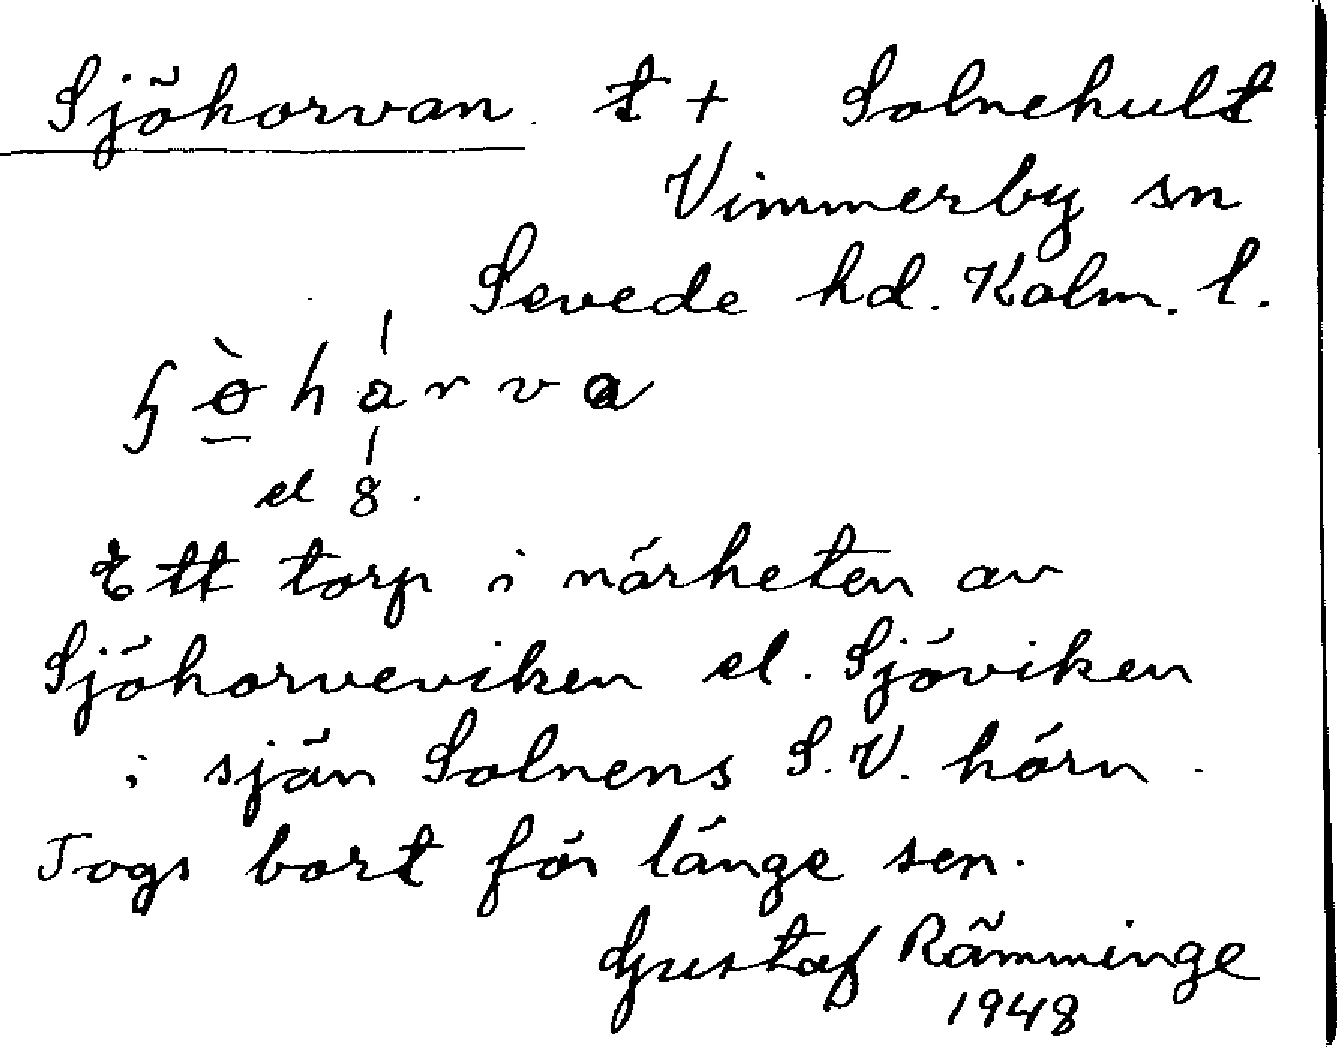 Sjöhorvan t + Solnehult
Vimmerby sn
Sevede hd. Kalm. l.
el 8.
Ett torp i närheten av
Sjöhorveviken el. Sjöviken
i sjön Solnens S.V. hörn.
Togs bort för länge sen.
Gustaf Rämminge
1948